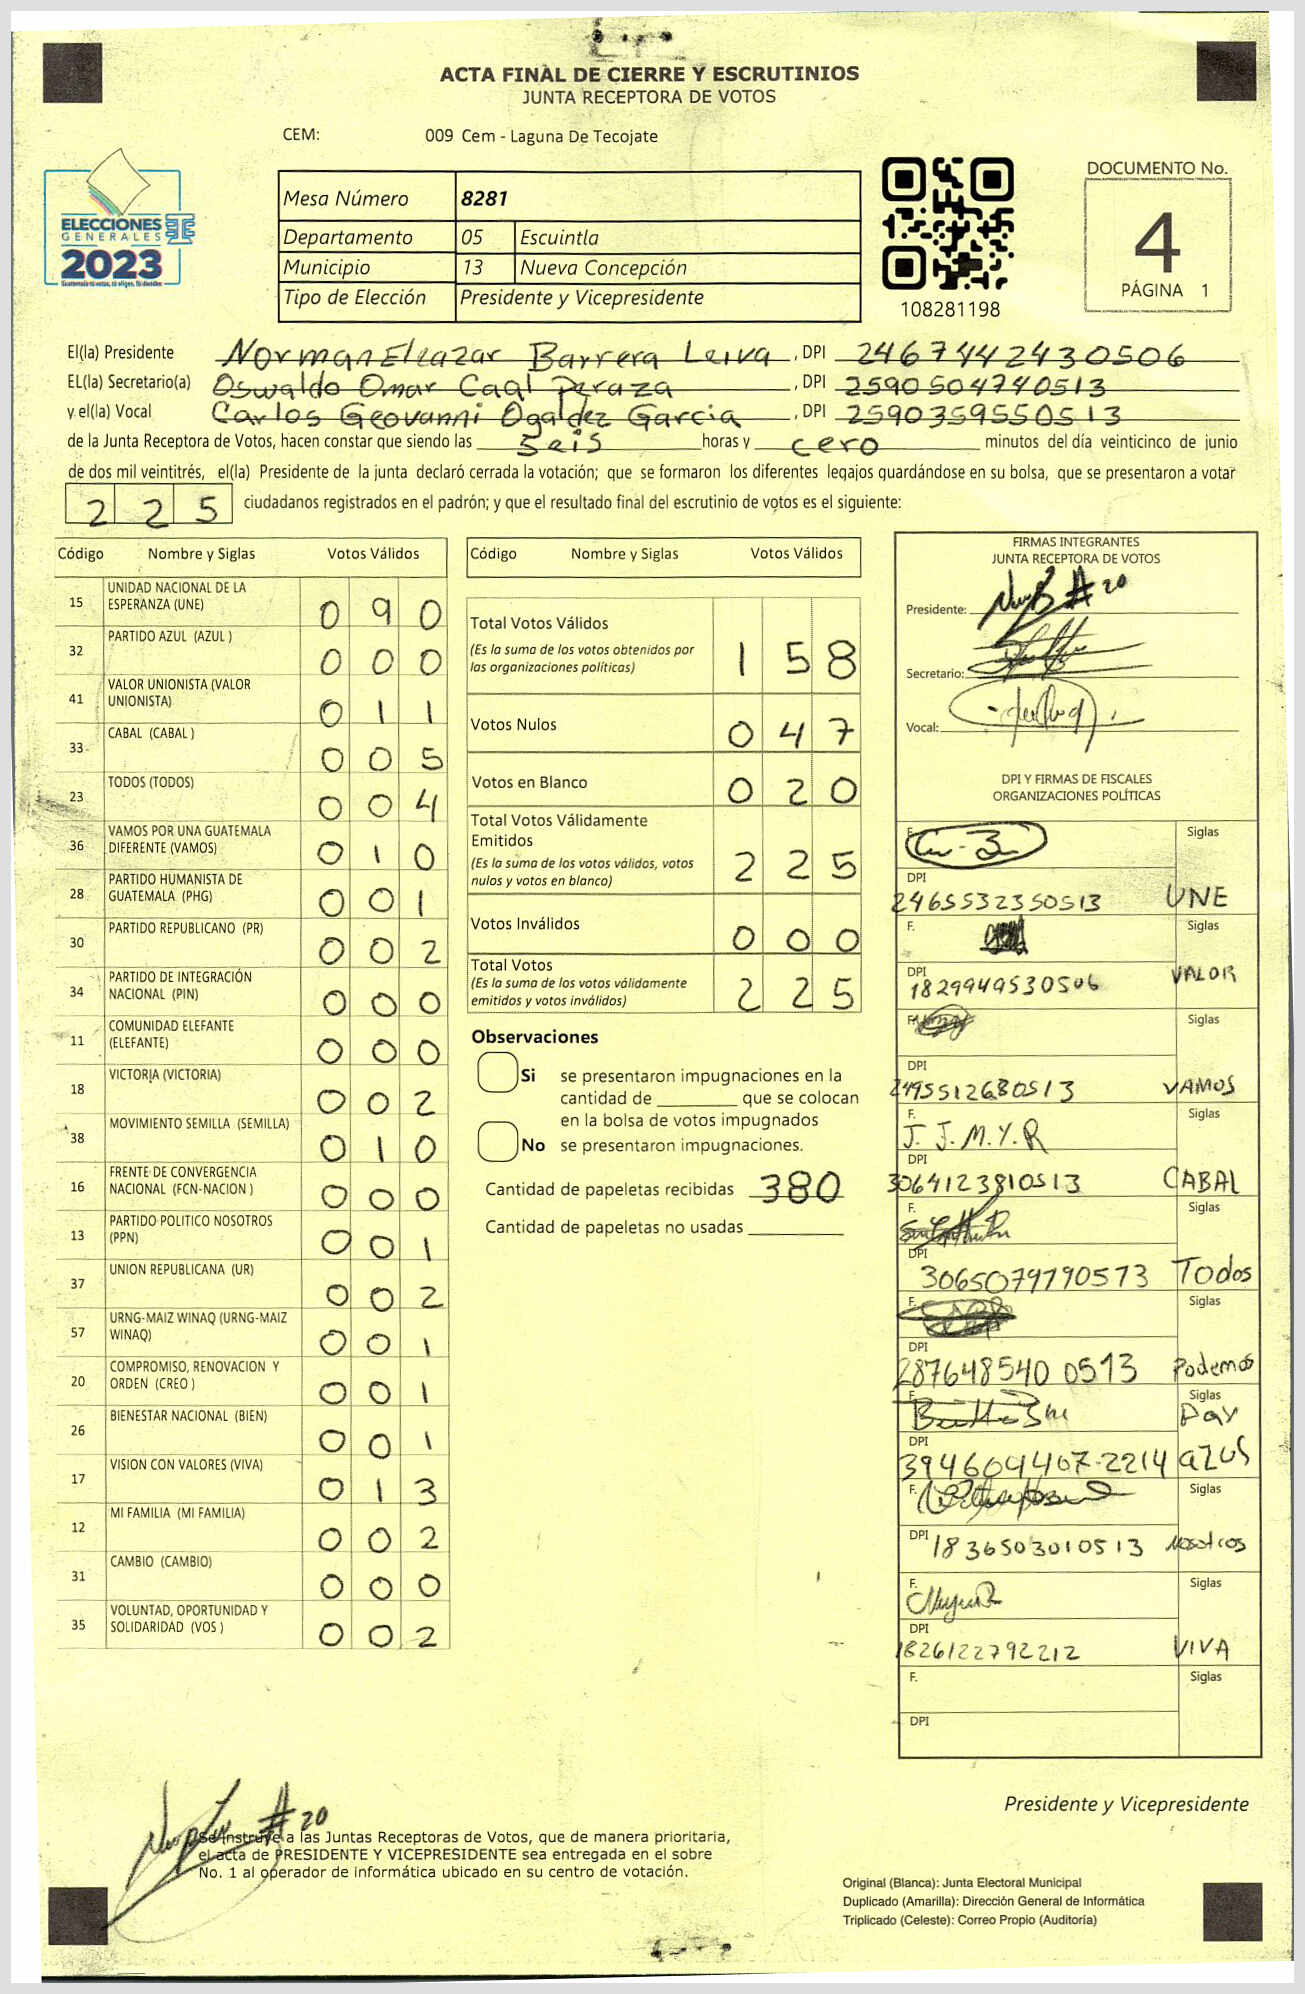 ACTA FINAL DE CIERRE Y ESCRUTINIOS
JUNTA RECEPTORA DE VOTOS
CEM: 009 Cem - Laguna De Tecojate
ELECCIONES
GENERALES
2023
Guatemala tú votas, tú eliges, tú decides
Mesa Número 8281
Departamento 05 Escuintla
Municipio 13 Nueva Concepción
Tipo de Elección Presidente y Vicepresidente
108281198
DOCUMENTO No.
4
PÁGINA 1
El(la) Presidente Norman Eleazar Barrera Leiva, DPI 2467442430506
EL(la) Secretario(a) Oswaldo Omar Caal Peraza, DPI 2590504740513
y el(la) Vocal Carlos Geovanni Ogaldez Garcia, DPI 2590359550513
de la Junta Receptora de Votos, hacen constar que siendo las seis horas y cero minutos del día veinticinco de junio
de dos mil veintitrés, el(la) Presidente de la junta declaró cerrada la votación; que se formaron los diferentes legajos guardándose en su bolsa, que se presentaron a votar
225 ciudadanos registrados en el padrón; y que el resultado final del escrutinio de votos es el siguiente:
Código Nombre y Siglas Votos Válidos
15 UNIDAD NACIONAL DE LA
ESPERANZA (UNE) 0 9 0
32 PARTIDO AZUL (AZUL ) 0 0 0
41 VALOR UNIONISTA (VALOR
UNIONISTA) 0 1 1
33 CABAL (CABAL ) 0 0 5
23 TODOS (TODOS) 0 0 4
36 VAMOS POR UNA GUATEMALA
DIFERENTE (VAMOS) 0 1 0
28 PARTIDO HUMANISTA DE
GUATEMALA (PHG) 0 0 1
30 PARTIDO REPUBLICANO (PR) 0 0 2
34 PARTIDO DE INTEGRACIÓN
NACIONAL (PIN) 0 0 0
11 COMUNIDAD ELEFANTE
(ELEFANTE) 0 0 0
18 VICTORIA (VICTORIA) 0 0 2
38 MOVIMIENTO SEMILLA (SEMILLA) 0 1 0
16 FRENTE DE CONVERGENCIA
NACIONAL (FCN-NACION ) 0 0 0
13 PARTIDO POLITICO NOSOTROS
(PPN) 0 0 1
37 UNION REPUBLICANA (UR) 0 0 2
57 URNG-MAIZ WINAQ (URNG-MAIZ
WINAQ) 0 0 1
20 COMPROMISO, RENOVACION Y
ORDEN (CREO ) 0 0 1
26 BIENESTAR NACIONAL (BIEN) 0 0 1
17 VISION CON VALORES (VIVA) 0 1 3
12 MI FAMILIA (MI FAMILIA) 0 0 2
31 CAMBIO (CAMBIO) 0 0 0
35 VOLUNTAD, OPORTUNIDAD Y
SOLIDARIDAD (VOS ) 0 0 2
Código Nombre y Siglas Votos Válidos
Total Votos Válidos
(Es la suma de los votos obtenidos por
las organizaciones políticas) 1 5 8
Votos Nulos 0 4 7
Votos en Blanco 0 2 0
Total Votos Válidamente
Emitidos
(Es la suma de los votos válidos, votos
nulos y votos en blanco) 2 2 5
Votos Inválidos 0 0 0
Total Votos
(Es la suma de los votos válidamente
emitidos y votos inválidos) 2 2 5
Observaciones
Si se presentaron impugnaciones en la
cantidad de ________ que se colocan
en la bolsa de votos impugnados
No se presentaron impugnaciones.
Cantidad de papeletas recibidas 380
Cantidad de papeletas no usadas
FIRMAS INTEGRANTES
JUNTA RECEPTORA DE VOTOS
Presidente: #20
Secretario:
Vocal:
DPI Y FIRMAS DE FISCALES
ORGANIZACIONES POLÍTICAS
F. Siglas
DPI
2465532350513 UNE
F. Siglas
DPI
1829949530506 VALOR
F. Siglas
DPI
2495512680513 VAMOS
F. J. J. M. Y. R Siglas
DPI
3064123810513 CABAL
F. Siglas
DPI
3065079790513 Todos
F. Siglas
DPI
287648540 0513 Podemos
F. Siglas
DPI
394604407-2214 azul
F. Siglas
DPI 1836503010513 Nosotros
F. Siglas
DPI
1826122792212 VIVA
F. Siglas
DPI
Presidente y Vicepresidente
#20
Se instruye a las Juntas Receptoras de Votos, que de manera prioritaria,
el acta de PRESIDENTE Y VICEPRESIDENTE sea entregada en el sobre
No. 1 al operador de informática ubicado en su centro de votación.
Original (Blanca): Junta Electoral Municipal
Duplicado (Amarilla): Dirección General de Informática
Triplicado (Celeste): Correo Propio (Auditoría)